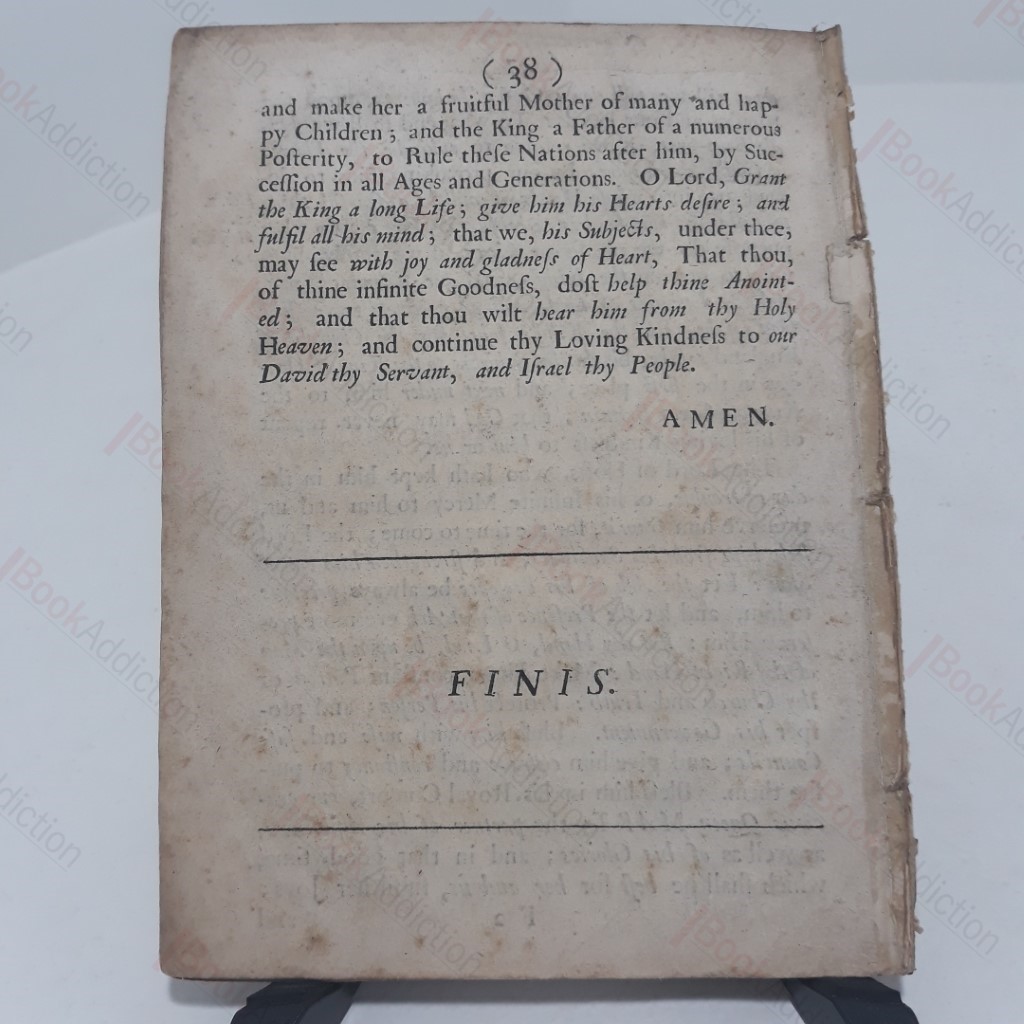 ( 38 )
and make her a fruitful Mother of many and hap-
py Children ; and the King a Father of a numerous
Poſterity, to Rule theſe Nations after him, by Suc-
ceſſion in all Ages and Generations. O Lord, Grant
the King a long Life ; give him his Hearts deſire ; and
fulfil all his mind ; that we, his Subjects, under thee,
may ſee with joy and gladneſs of Heart, That thou,
of thine infinite Goodneſs, doſt help thine Anoint-
ed ; and that thou wilt hear him from thy Holy
Heaven ; and continue thy Loving Kindneſs to our
David thy Servant, and Iſrael thy People.
AMEN.
FINIS.
BookAddiction